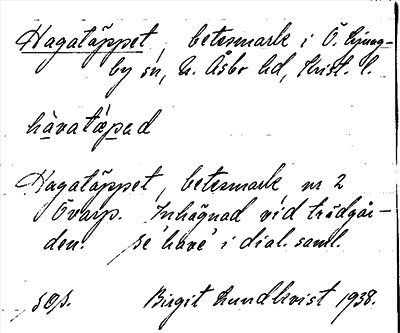 Hagatäppet, betesmark i Ö. Ljung-
by sn, N. Åsbo hd, Krist. l.
hàvatǽpad
Hagatäppet, betesmark nr 2
Övarp. Inhägnad vid trädgår-
den. se 'have' i dial. saml.
Birgit Lundkvist 1938.